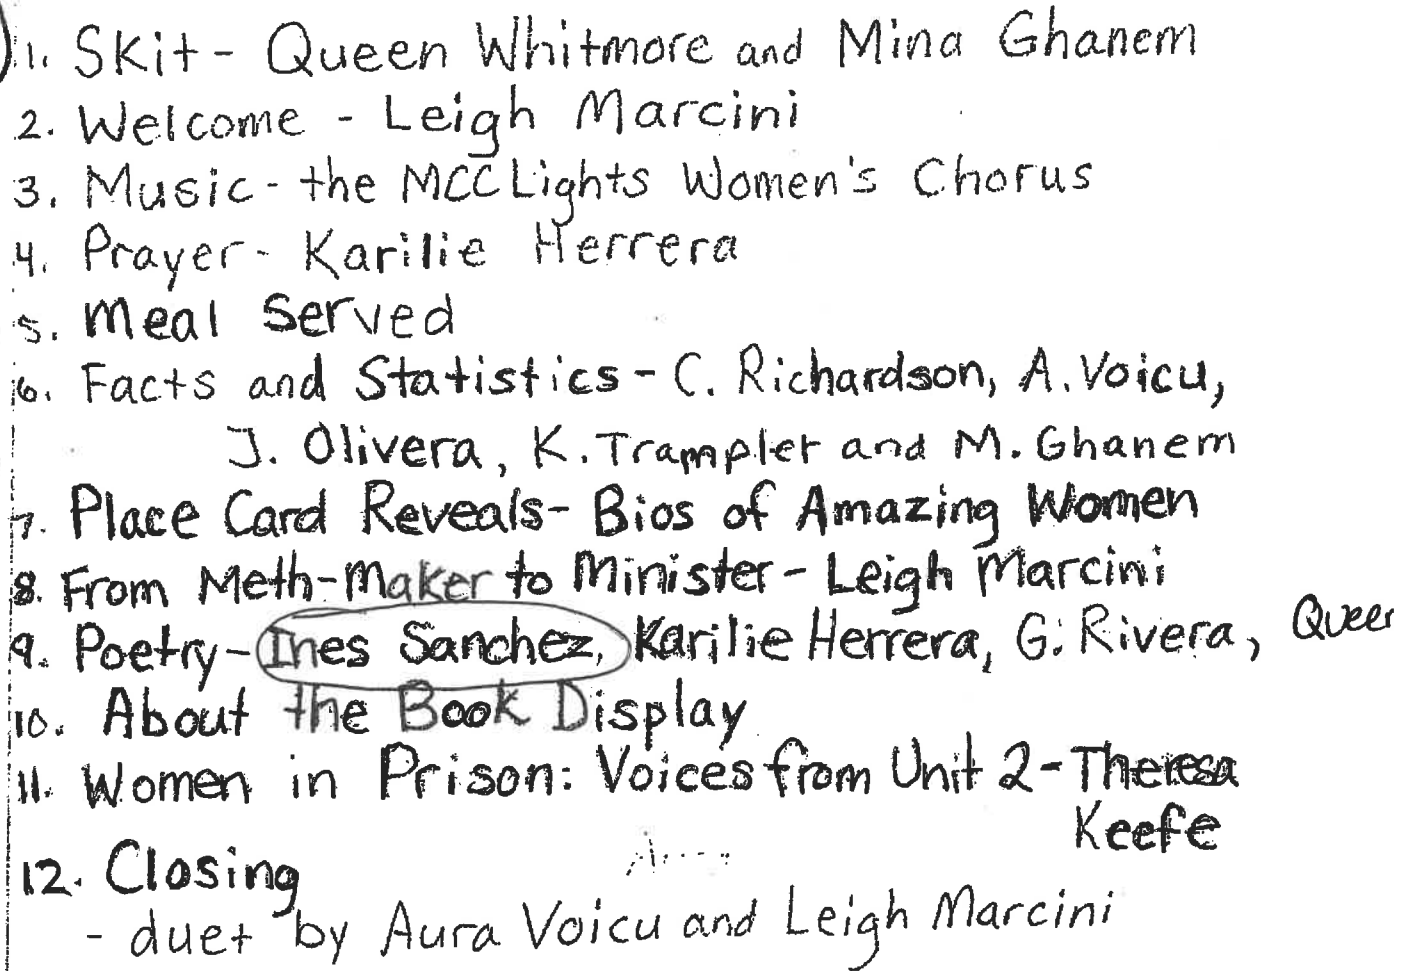 1. Skit - Queen Whitmore and Mina Ghanem
2. Welcome - Leigh Marcini
3. Music - the MCC Lights Women's Chorus
4. Prayer - Karilie Herrera
5. Meal Served
6. Facts and Statistics - C. Richardson, A. Voicu,
J. Olivera, K. Trampler and M. Ghanem
7. Place Card Reveals - Bios of Amazing Women
8. From Meth-Maker to Minister - Leigh Marcini
9. Poetry - Ines Sanchez, Karilie Herrera, G. Rivera, Queen
10. About the Book Display
11. Women in Prison: Voices from Unit 2 - Theresa
Keefe
12. Closing
- duet by Aura Voicu and Leigh Marcini